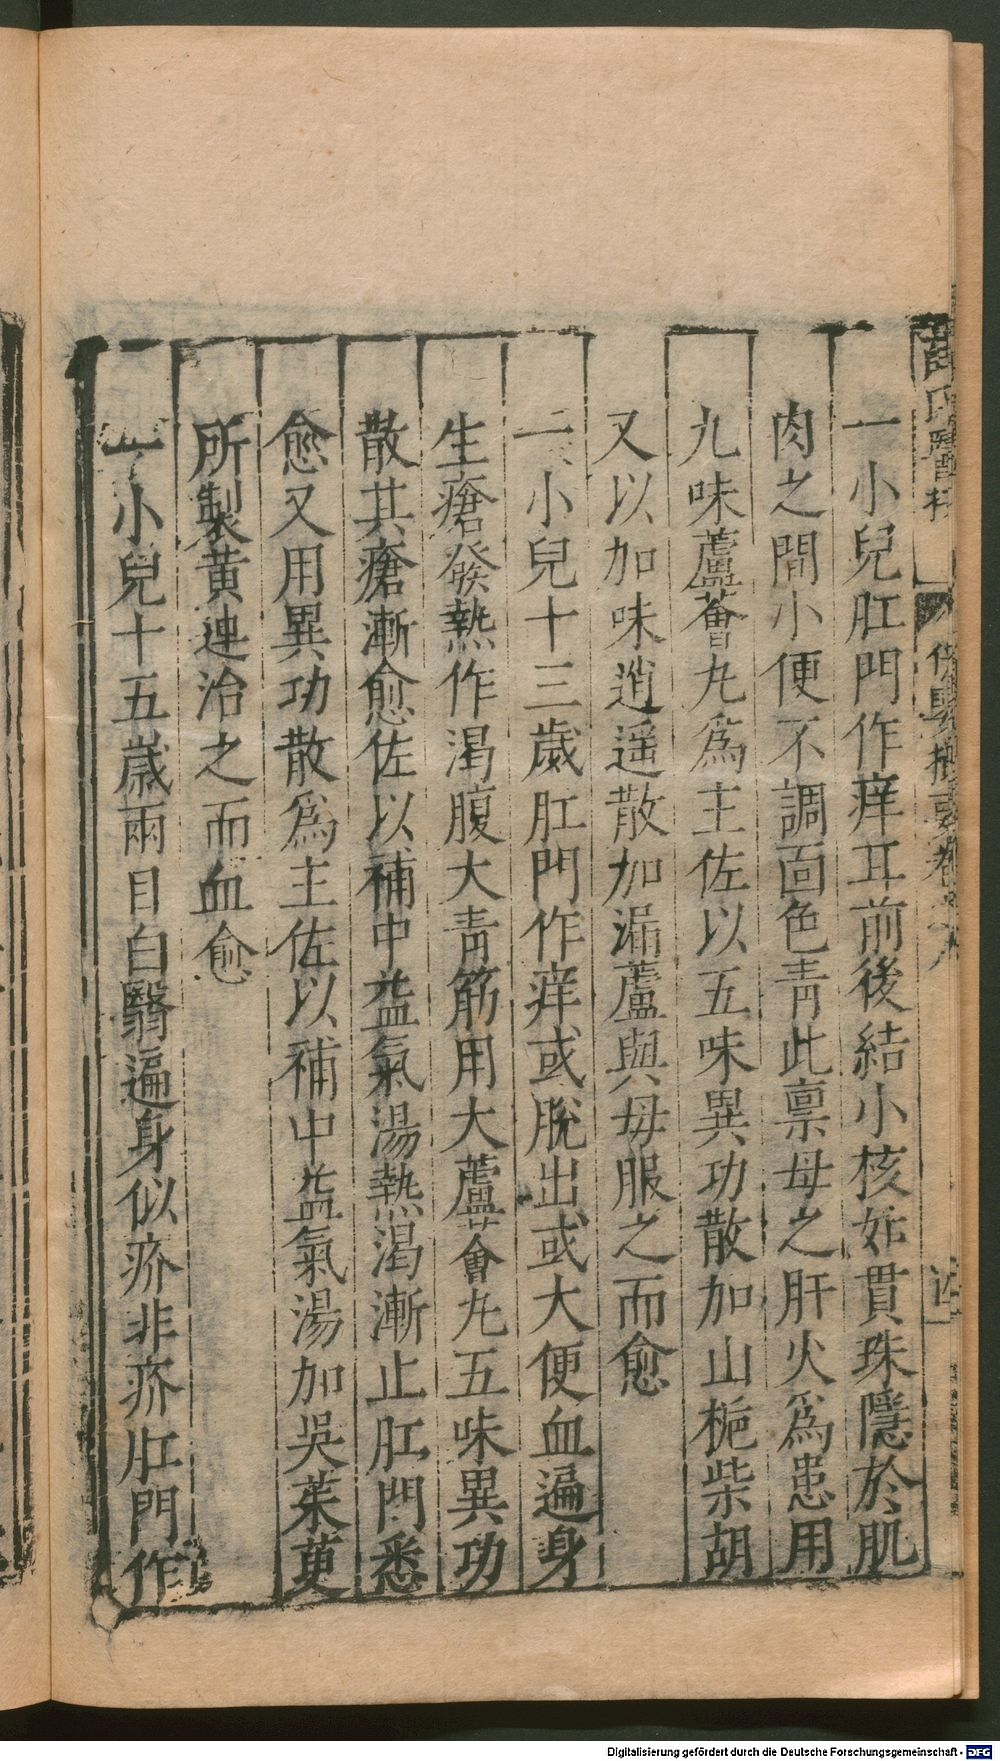 一小兒肛門作痒耳前後結小核如貫珠隱於肌
肉之間小便不調面色青此禀母之肝火爲患用
九味蘆薈丸爲主佐以五味異功散加山梔柴胡
又以加味逍遥散加漏蘆與母服之而愈
一小兒十三歲肛門作痒或脫出或大便血遍身
生瘡發熱作渴腹大青筋用大蘆薈丸五味異功
散其瘡漸愈佐以補中益氣湯熱渴漸止肛門悉
愈又用異功散爲主佐以補中益氣湯加吳茱萸
所製黃連治之而血愈
一小兒十五歲兩目白翳遍身似疥非疥肛門作
Digitalisierung gefördert durch die Deutsche Forschungsgemeinschaft - DFG